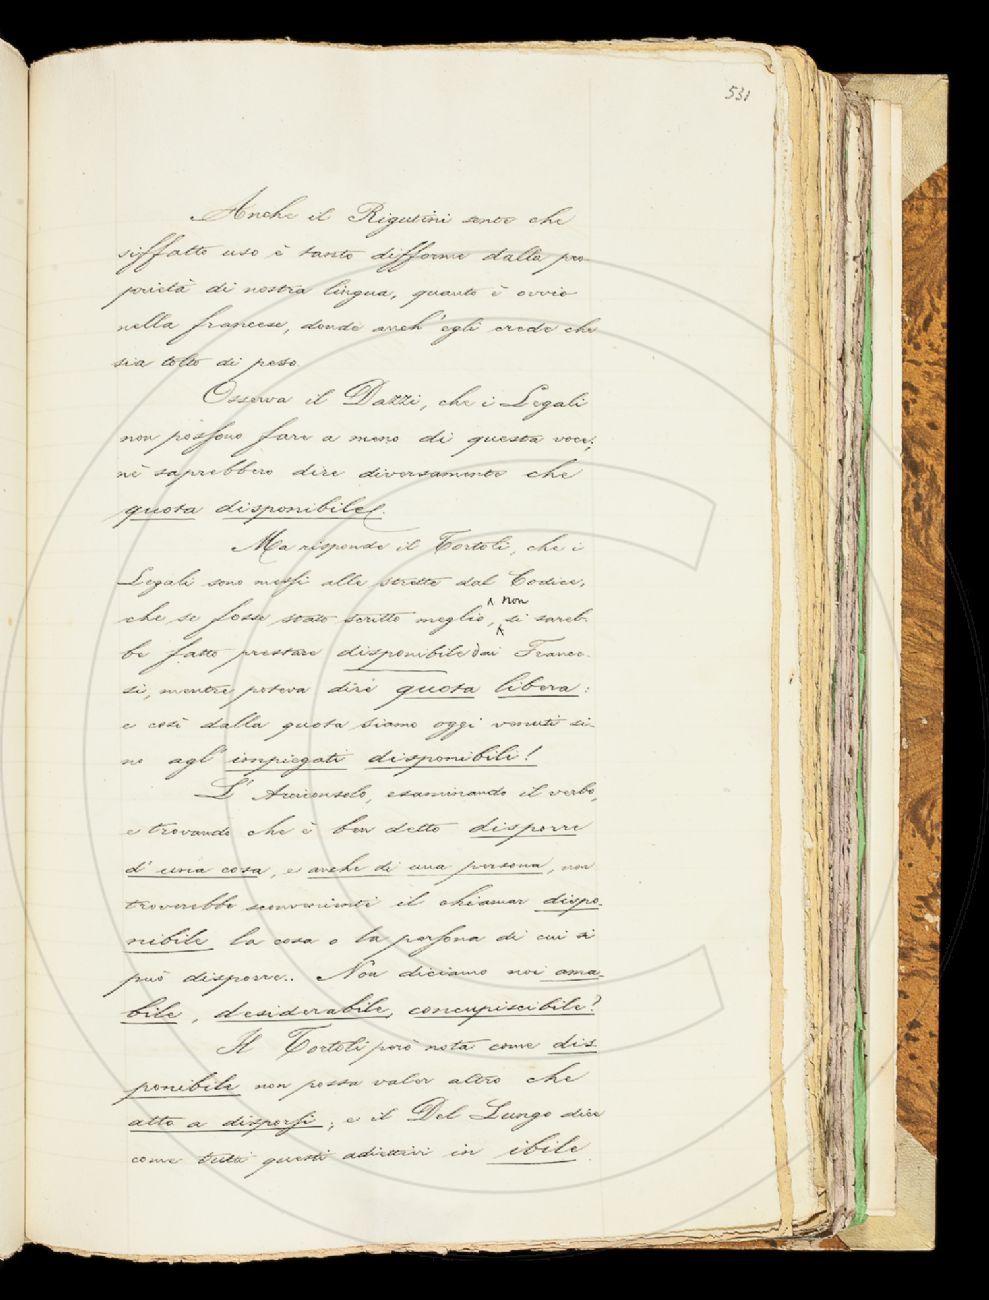 531
Anche il Rigutini sente che
siffatto uso è tanto difforme dalla pro
prietà di nostra lingua, quanto è ovvio
nella francese, donde anch'egli crede che
sia tolto di peso.
Osserva il Dazzi, che i Legali
non possono fare a meno di questa voce;
nè saprebbero dire diversamente che
quota disponibile.
Ma risponde il Tortoli, che i
Legali sono messi alle strette dal Codice,
che se fosse stato scritto meglio, non si sareb-
be fatto prestare disponibile dai France-
si, mentre poteva dire quota libera:
e così dalla quota siamo oggi venuti si-
no agl'impiegati disponibili!
L'Arciconsolo, esaminando il verbo,
e trovando che è ben detto disporre
d'una cosa, e anche di una persona, non
troverebbe sconveniente il chiamar dispo-
nibile la cosa o la persona di cui si
può disporre. Non diciamo noi ama-
bile, desiderabile, concupiscibile?
Il Tortoli però nota come dis-
ponibile non possa valer altro che
atto a disporsi; e il Del Lungo dice
come tutti questi adiettivi in ibile